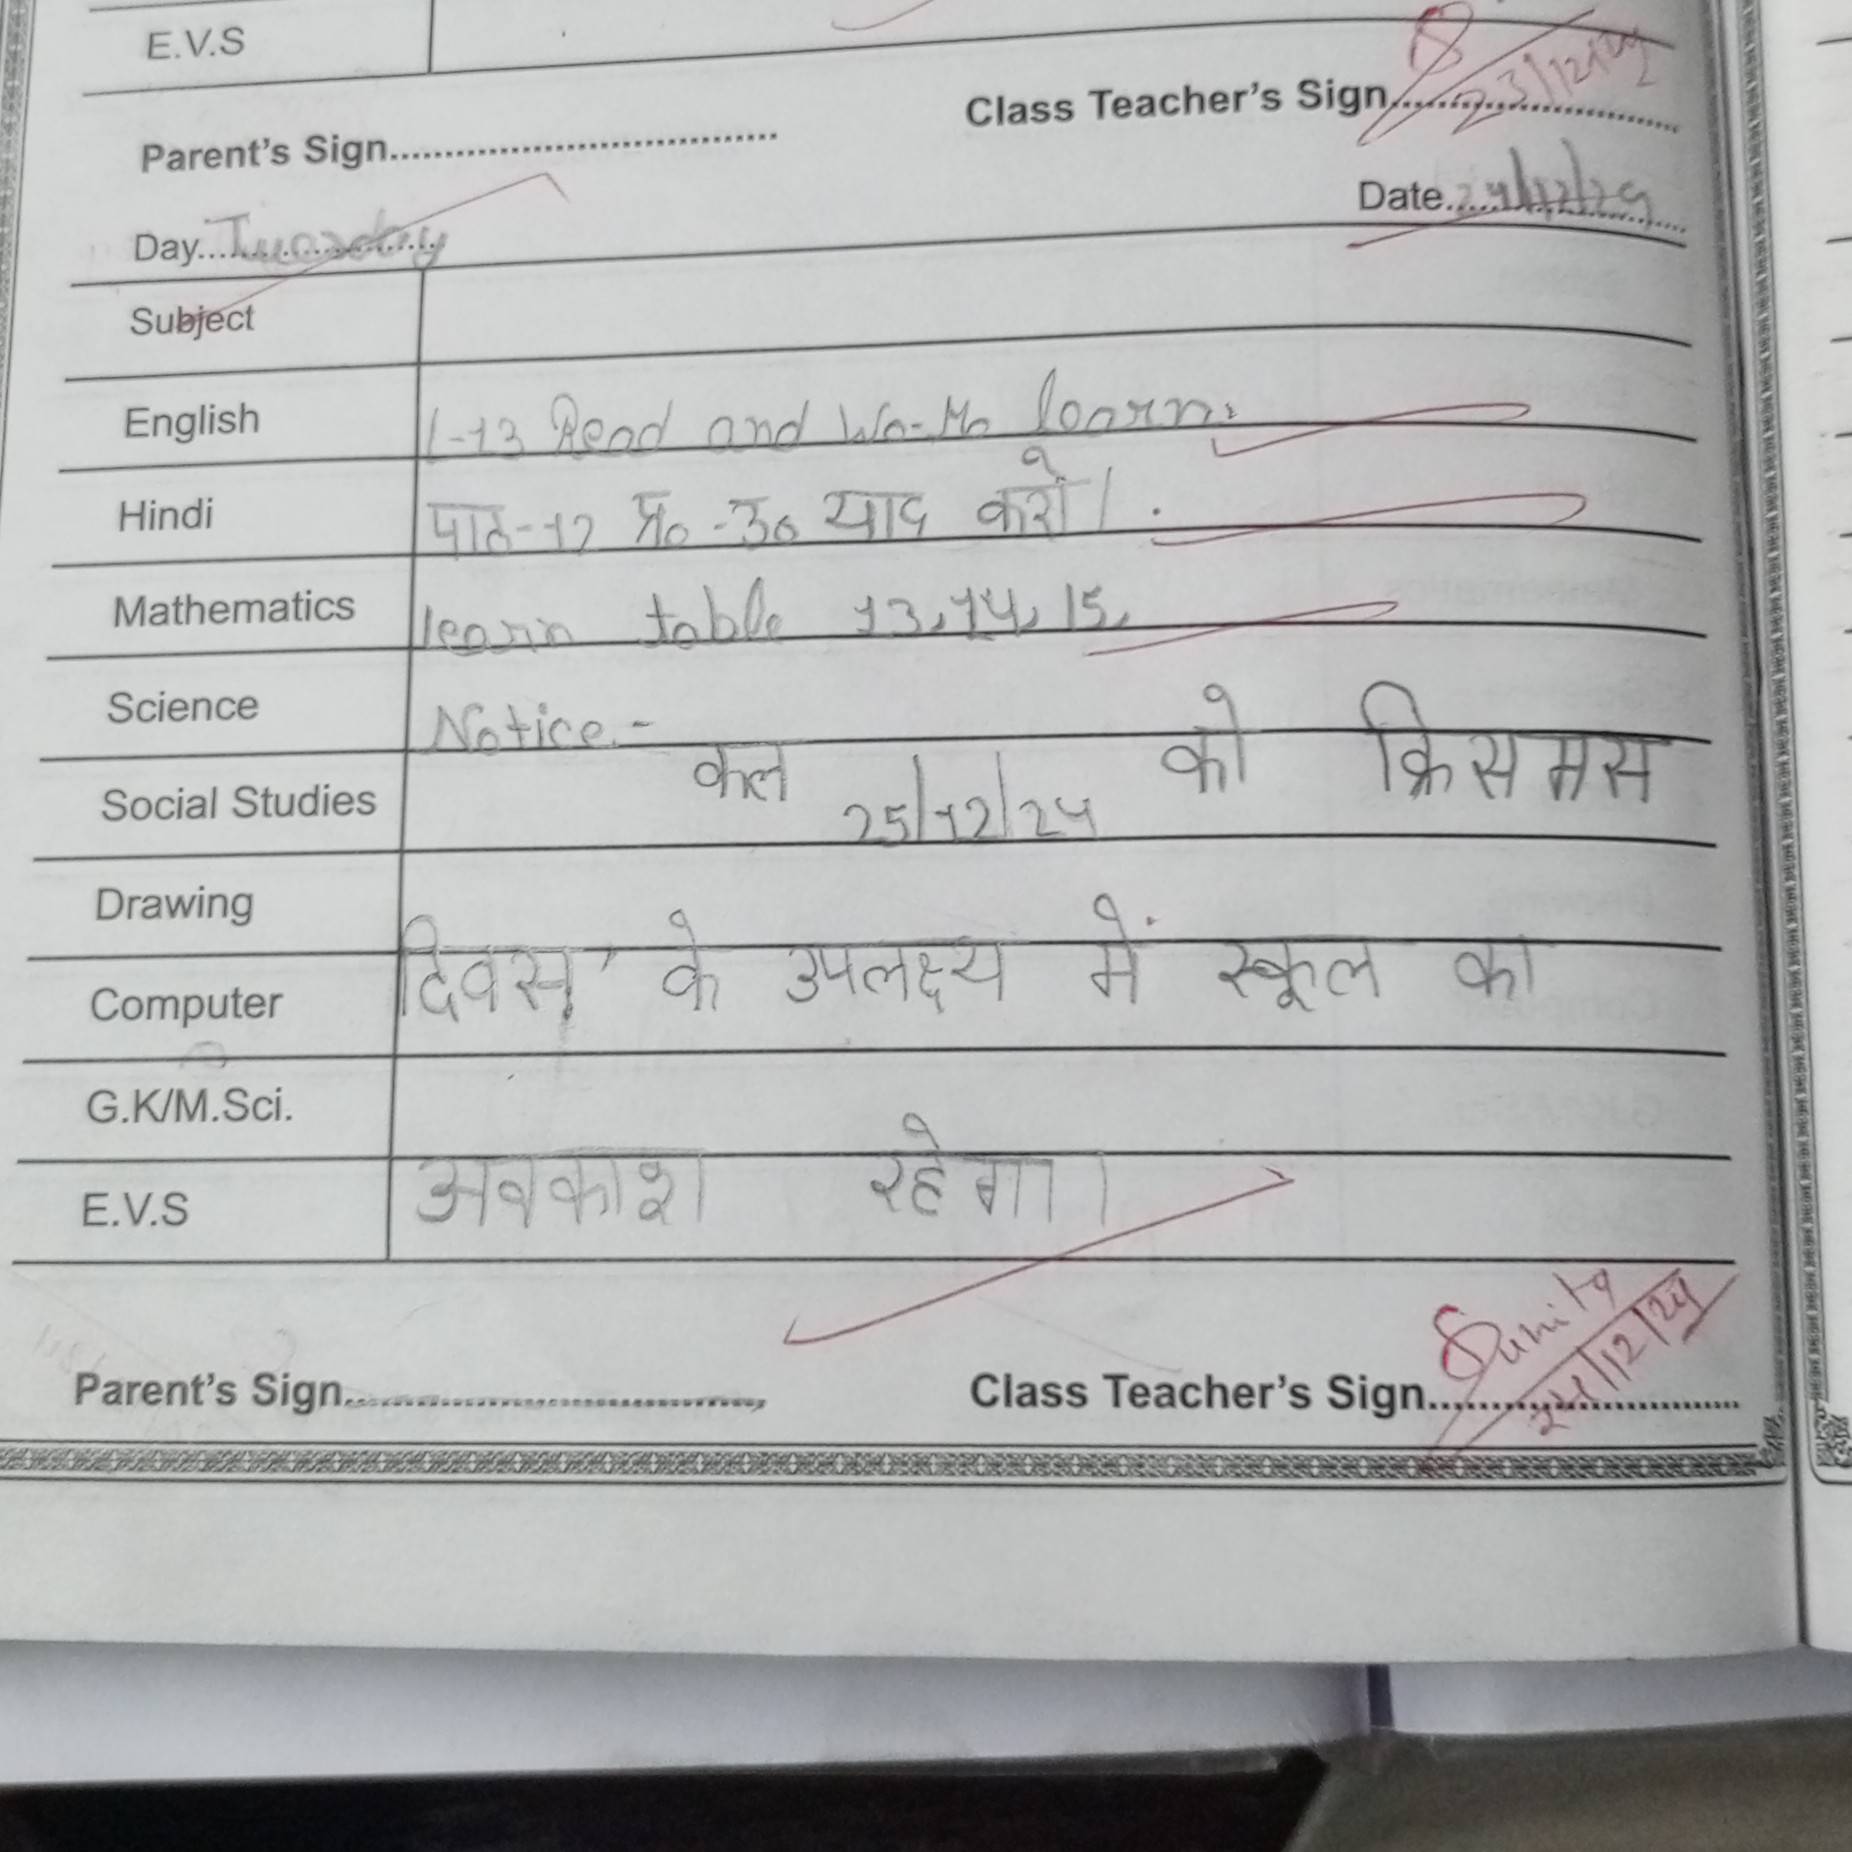 E.V.S
Class Teacher's Sign 23/12/24
Parent's Sign
Date 24/12/24
Day Tuesday
Subject
English L-13 Read and Wo-Mo learn.
Hindi पाठ-12 प्र०-उ० याद करो।
Mathematics learn table 13,14,15.
Science Notice-
कल 25/12/24 को क्रिसमस
Social Studies
Drawing
दिवस के उपलक्ष्य में स्कूल का
Computer
G.K/M.Sci.
E.V.S अवकाश रहेगा।
Parent's Sign
Class Teacher's Sign Sunita 24/12/24